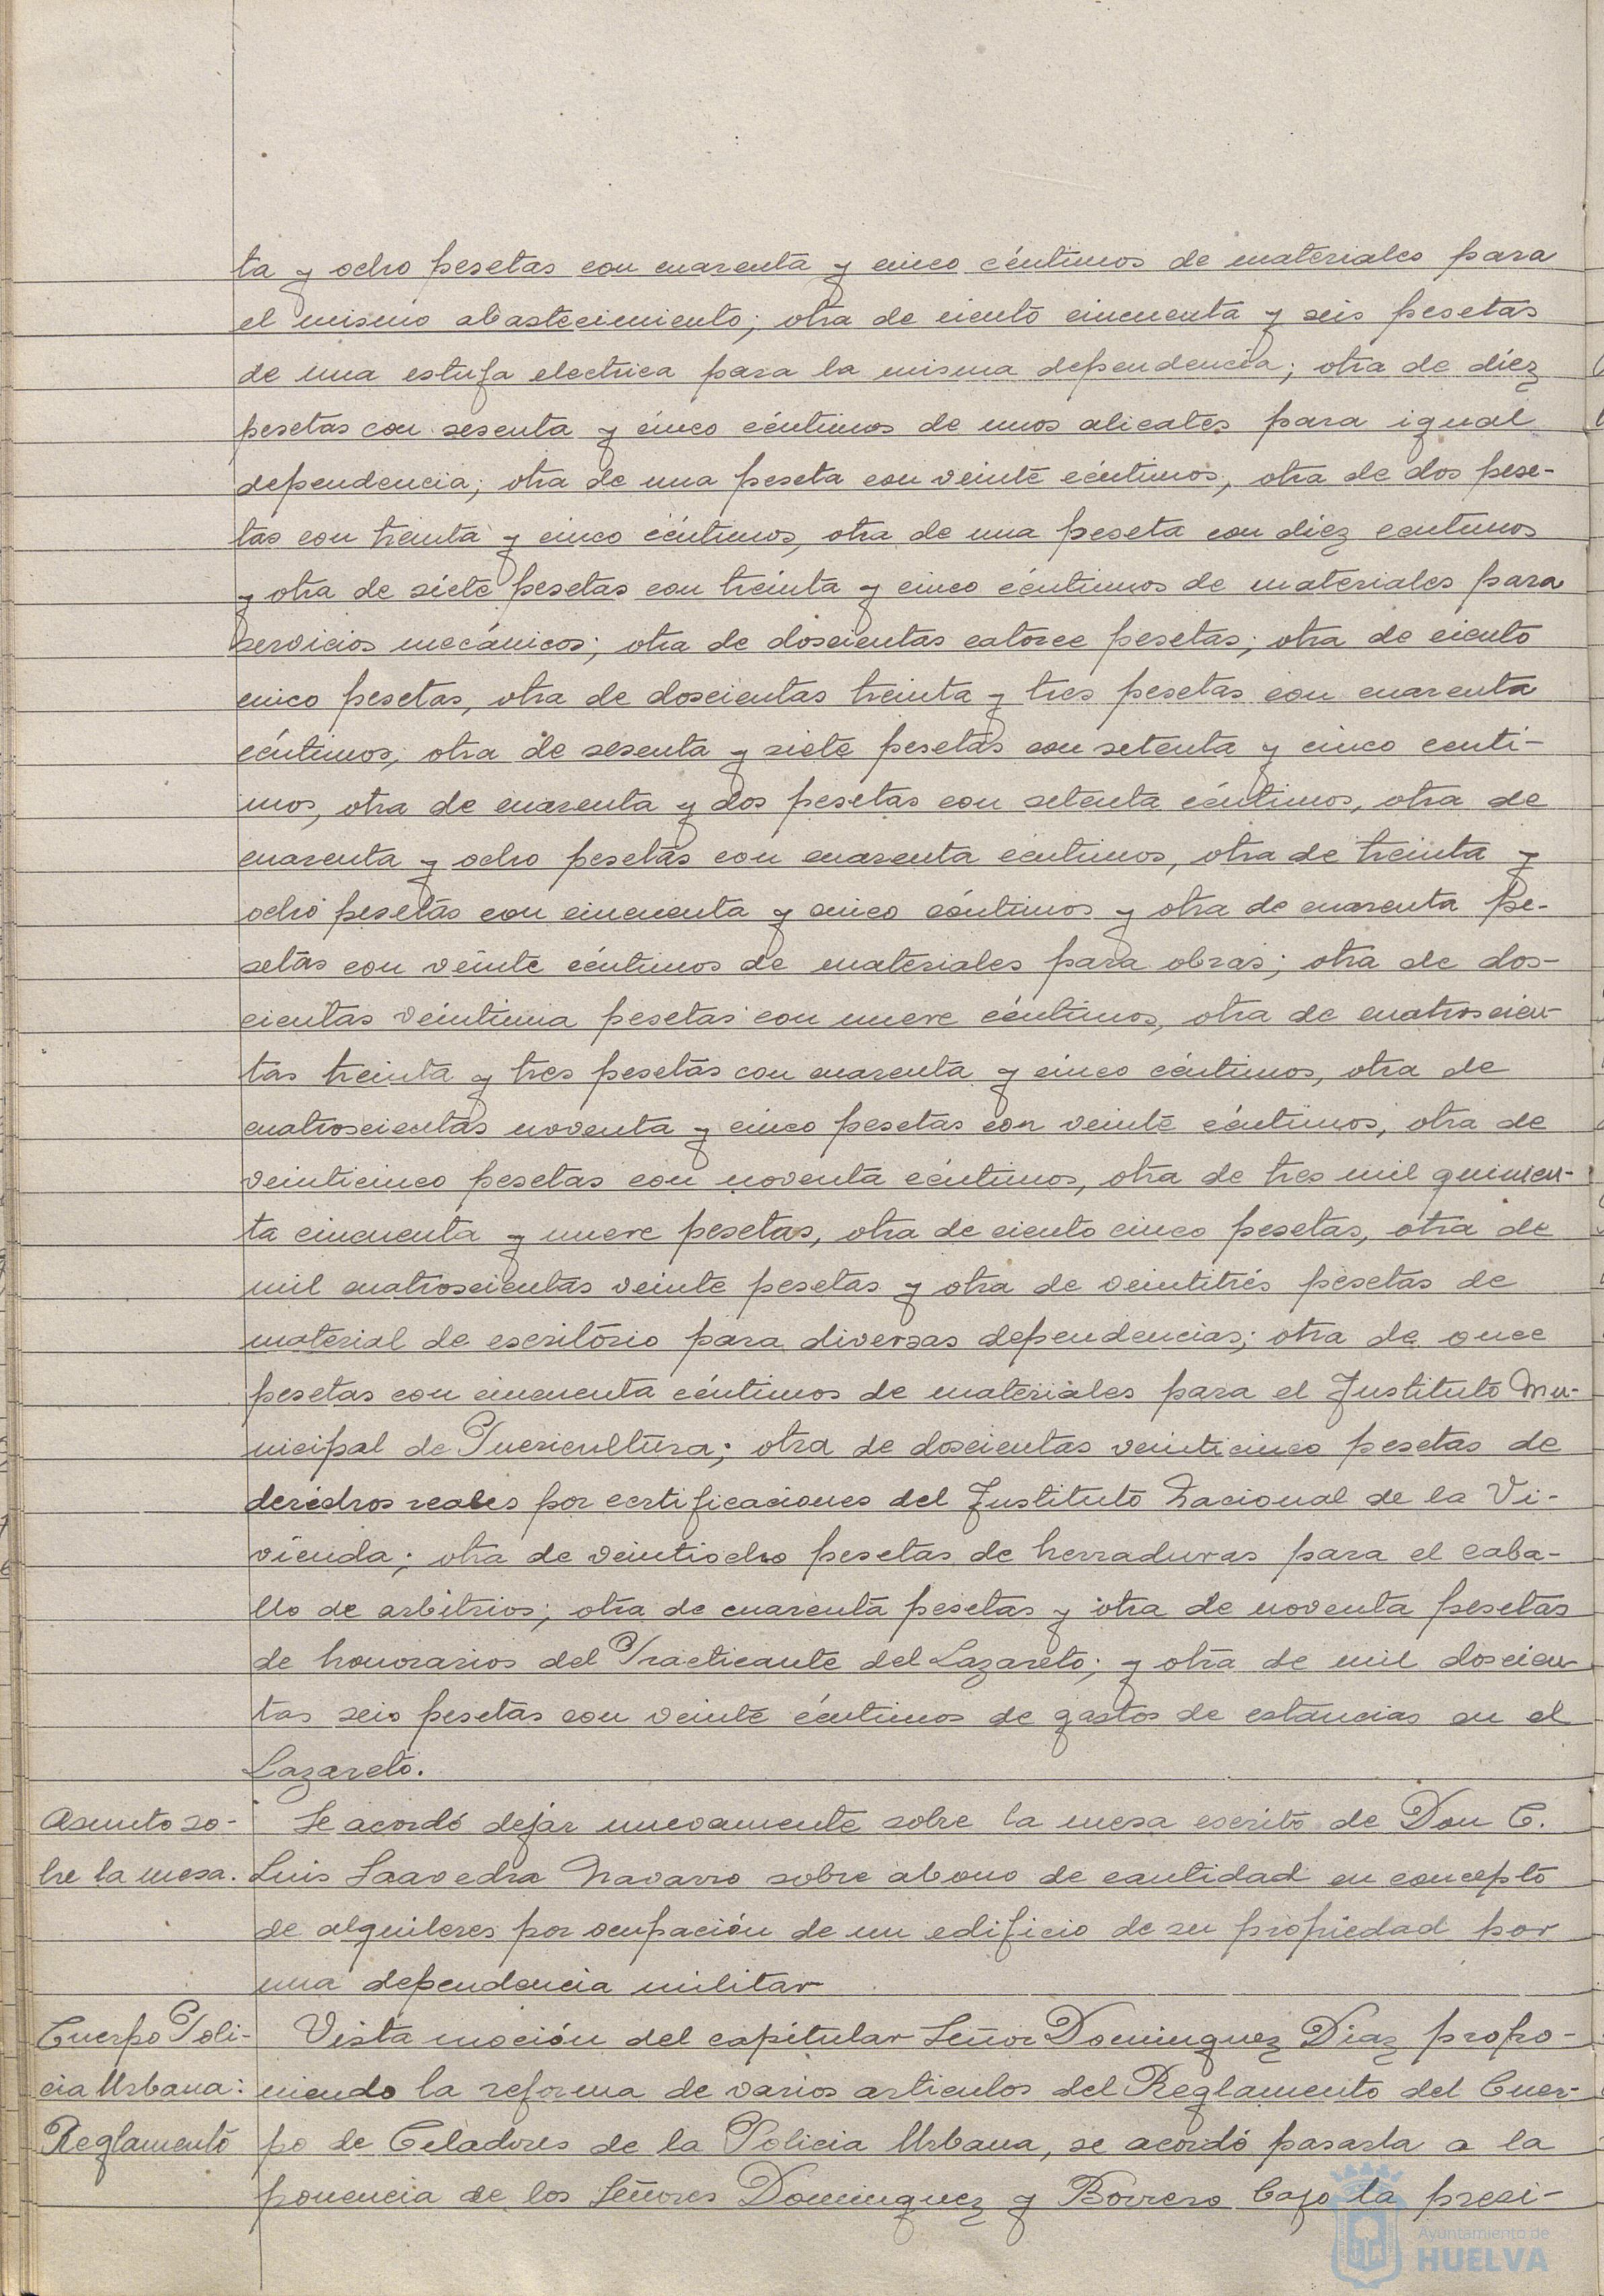 ta y ocho pesetas con cuarenta y cinco céntimos de materiales para
el mismo abastecimiento; otra de ciento cincuenta y seis pesetas
de una estufa electrica para la misma dependencia; otra de diez
pesetas con sesenta y cinco céntimos de unos alicates para igual
dependencia; otra de una peseta con veinte céntimos, otra de dos pese-
tas con treinta y cinco céntimos, otra de una peseta con diez centimos
y otra de siete pesetas con treinta y cinco céntimos de materiales para
servicios mecánicos; otra de doscientas catorce pesetas; otra de ciento
cinco pesetas, otra de doscientas treinta y tres pesetas con cuarenta
céntimos, otra de sesenta y siete pesetas con setenta y cinco centi-
mos, otra de cuarenta y dos pesetas con setenta céntimos, otra de
cuarenta y ocho pesetas con cuarenta céntimos, otra de treinta y
ocho pesetas con cincuenta y cinco céntimos y otra de cuarenta pe-
setas con veinte céntimos de materiales para obras; otra de dos-
cientas veintiuna pesetas con nueve céntimos, otra de cuatroscien-
tas treinta y tres pesetas con cuarenta y cinco céntimos, otra de
cuatroscientas noventa y cinco pesetas con veinte céntimos, otra de
veinticinco pesetas con noventa céntimos, otra de tres mil quinien-
ta cincuenta y nueve pesetas, otra de ciento cinco pesetas, otra de
mil cuatroscientas veinte pesetas y otra de veintitrés pesetas de
material de escritorio para diversas dependencias; otra de once
pesetas con cincuenta céntimos de materiales para el Instituto Mu-
nicipal de Puericultura; otra de doscientas veinticinco pesetas de
derechos reales por certificaciones del Instituto Nacional de la Vi-
vienda; otra de veintiocho pesetas de herraduras para el caba-
llo de arbitrios; otra de cuarenta pesetas y otra de noventa pesetas
de honorarios del Practicante del Lazareto; y otra de mil doscien-
tas seis pesetas con veinte céntimos de gastos de estancias en el
Lazareto.
Asunto so-
bre la mesa.
Se acordó dejar nuevamente sobre la mesa escrito de Don C.
Luis Saavedra Navarro sobre abono de cantidad en concepto
de alquileres por ocupación de un edificio de su propiedad por
una dependencia militar
Cuerpo Poli-
cia Urbana:
Reglamento
Vista moción del capitular Señor Dominguez Diaz propo-
niendo la reforma de varios articulos del Reglamento del Cuer-
po de Celadores de la Policia Urbana, se acordó pasarla a la
ponencia de los Señores Dominguez y Borrero bajo la presi-
Ayuntamiento de
HUELVA